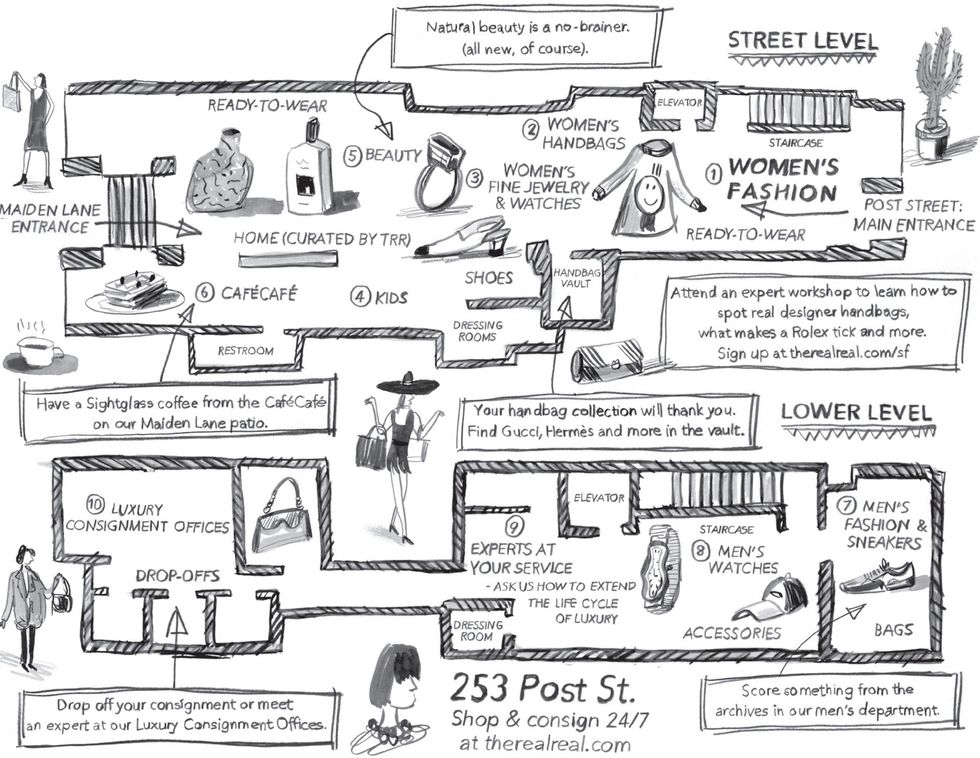 Natural beauty is a no-brainer.
(all new, of course).
STREET LEVEL
READY-TO-WEAR
ELEVATOR
STAIRCASE
② WOMEN'S
HANDBAGS
⑤ BEAUTY
③ WOMEN'S
FINE JEWELRY
& WATCHES
① WOMEN'S
FASHION
MAIDEN LANE
ENTRANCE
POST STREET:
MAIN ENTRANCE
HOME (CURATED BY TRR)
READY-TO-WEAR
SHOES
HANDBAG
VAULT
⑥ CAFÉCAFÉ
④ KIDS
DRESSING
ROOMS
RESTROOM
Attend an expert workshop to learn how to
spot real designer handbags,
what makes a Rolex tick and more.
Sign up at therealreal.com/sf
Have a Sightglass coffee from the CaféCafé
on our Maiden Lane patio.
Your handbag collection will thank you.
Find Gucci, Hermès and more in the vault.
LOWER LEVEL
⑩ LUXURY
CONSIGNMENT OFFICES
DROP-OFFS
ELEVATOR
STAIRCASE
⑨
EXPERTS AT
YOUR SERVICE
- ASK US HOW TO EXTEND
THE LIFE CYCLE
OF LUXURY
⑧ MEN'S
WATCHES
⑦ MEN'S
FASHION &
SNEAKERS
DRESSING
ROOM
ACCESSORIES
BAGS
Drop off your consignment or meet
an expert at our Luxury Consignment Offices.
253 Post St.
Shop & consign 24/7
at therealreal.com
Score something from the
archives in our men's department.